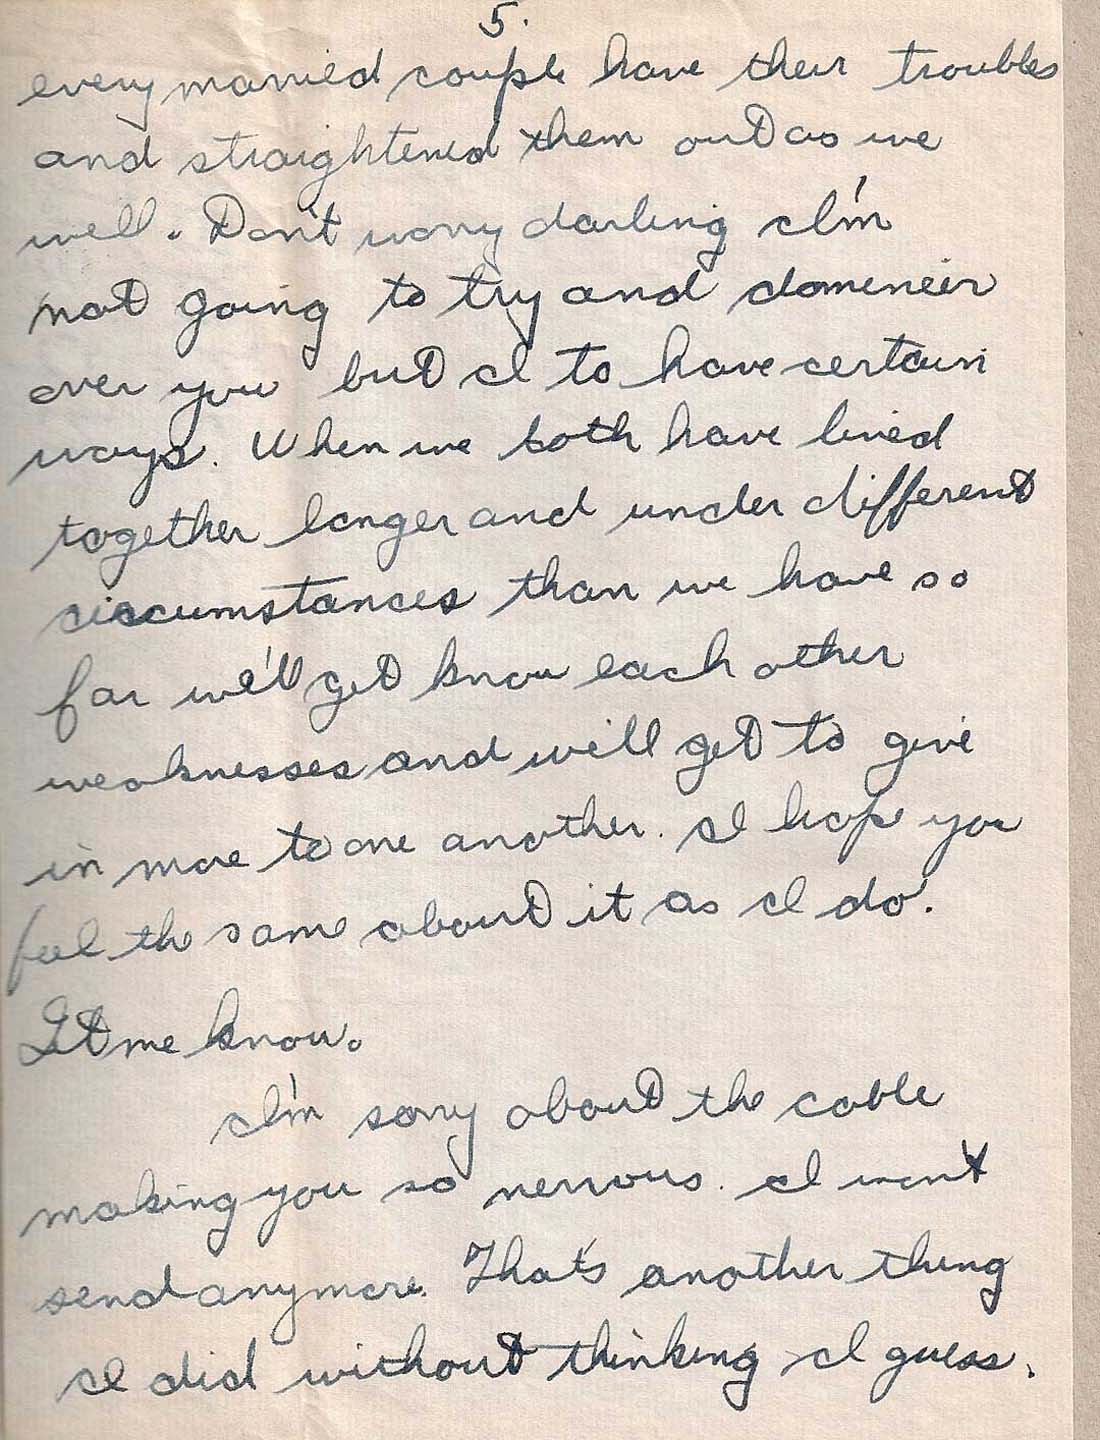 5.
every married couple have their troubles
and straightened them out as we
well. Don't worry darling I'm
not going to try and domeneir
over you but I to have certain
ways. When we both have lived
together longer and under different
circumstances than we have so
far we'll get know each other
weaknesses and we'll get to give
in more to one another. I hope you
feel the same about it as I do.
Let me know.
I'm sorry about the cable
making you so nervous. I won't
send anymore. That's another thing
I did without thinking I guess.